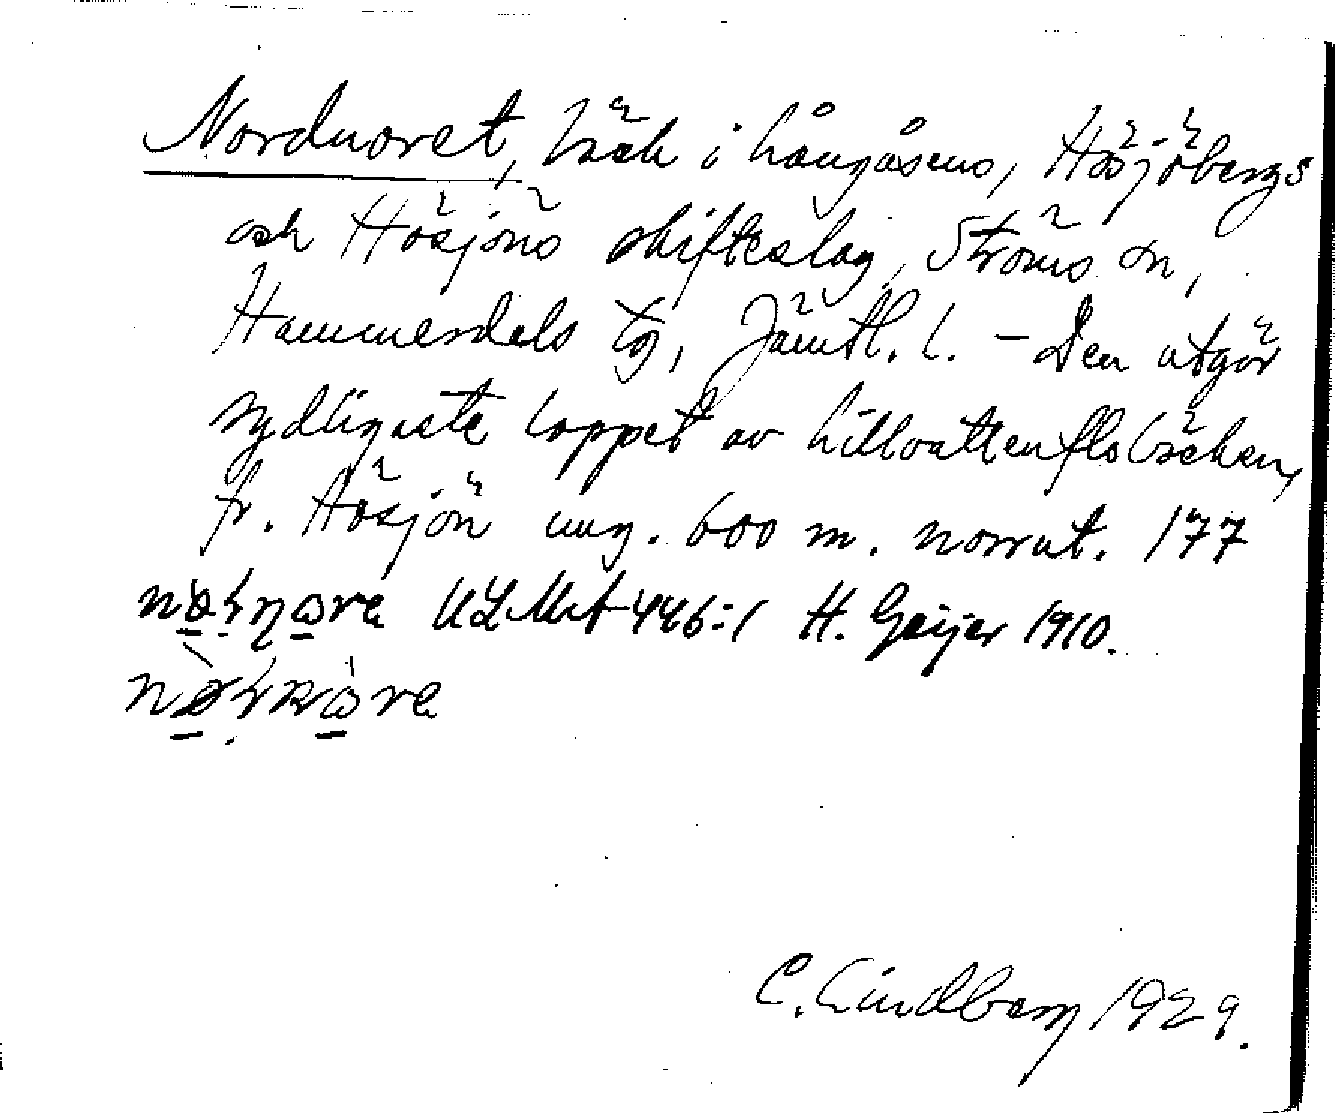 Nordnoret, bäck i Långåsens, Hösjöbergs
och Hösjöns skifteslag, Ströms sn,
Hammerdals tg, Jämtl. l. – Den utgör
sydligaste loppet av Lillvattenflobäcken,
fr. Hösjön ung. 600 m. norrut. 177
ULMA 446:1 H. Geijer 1910.
C. Lindberg 1929.